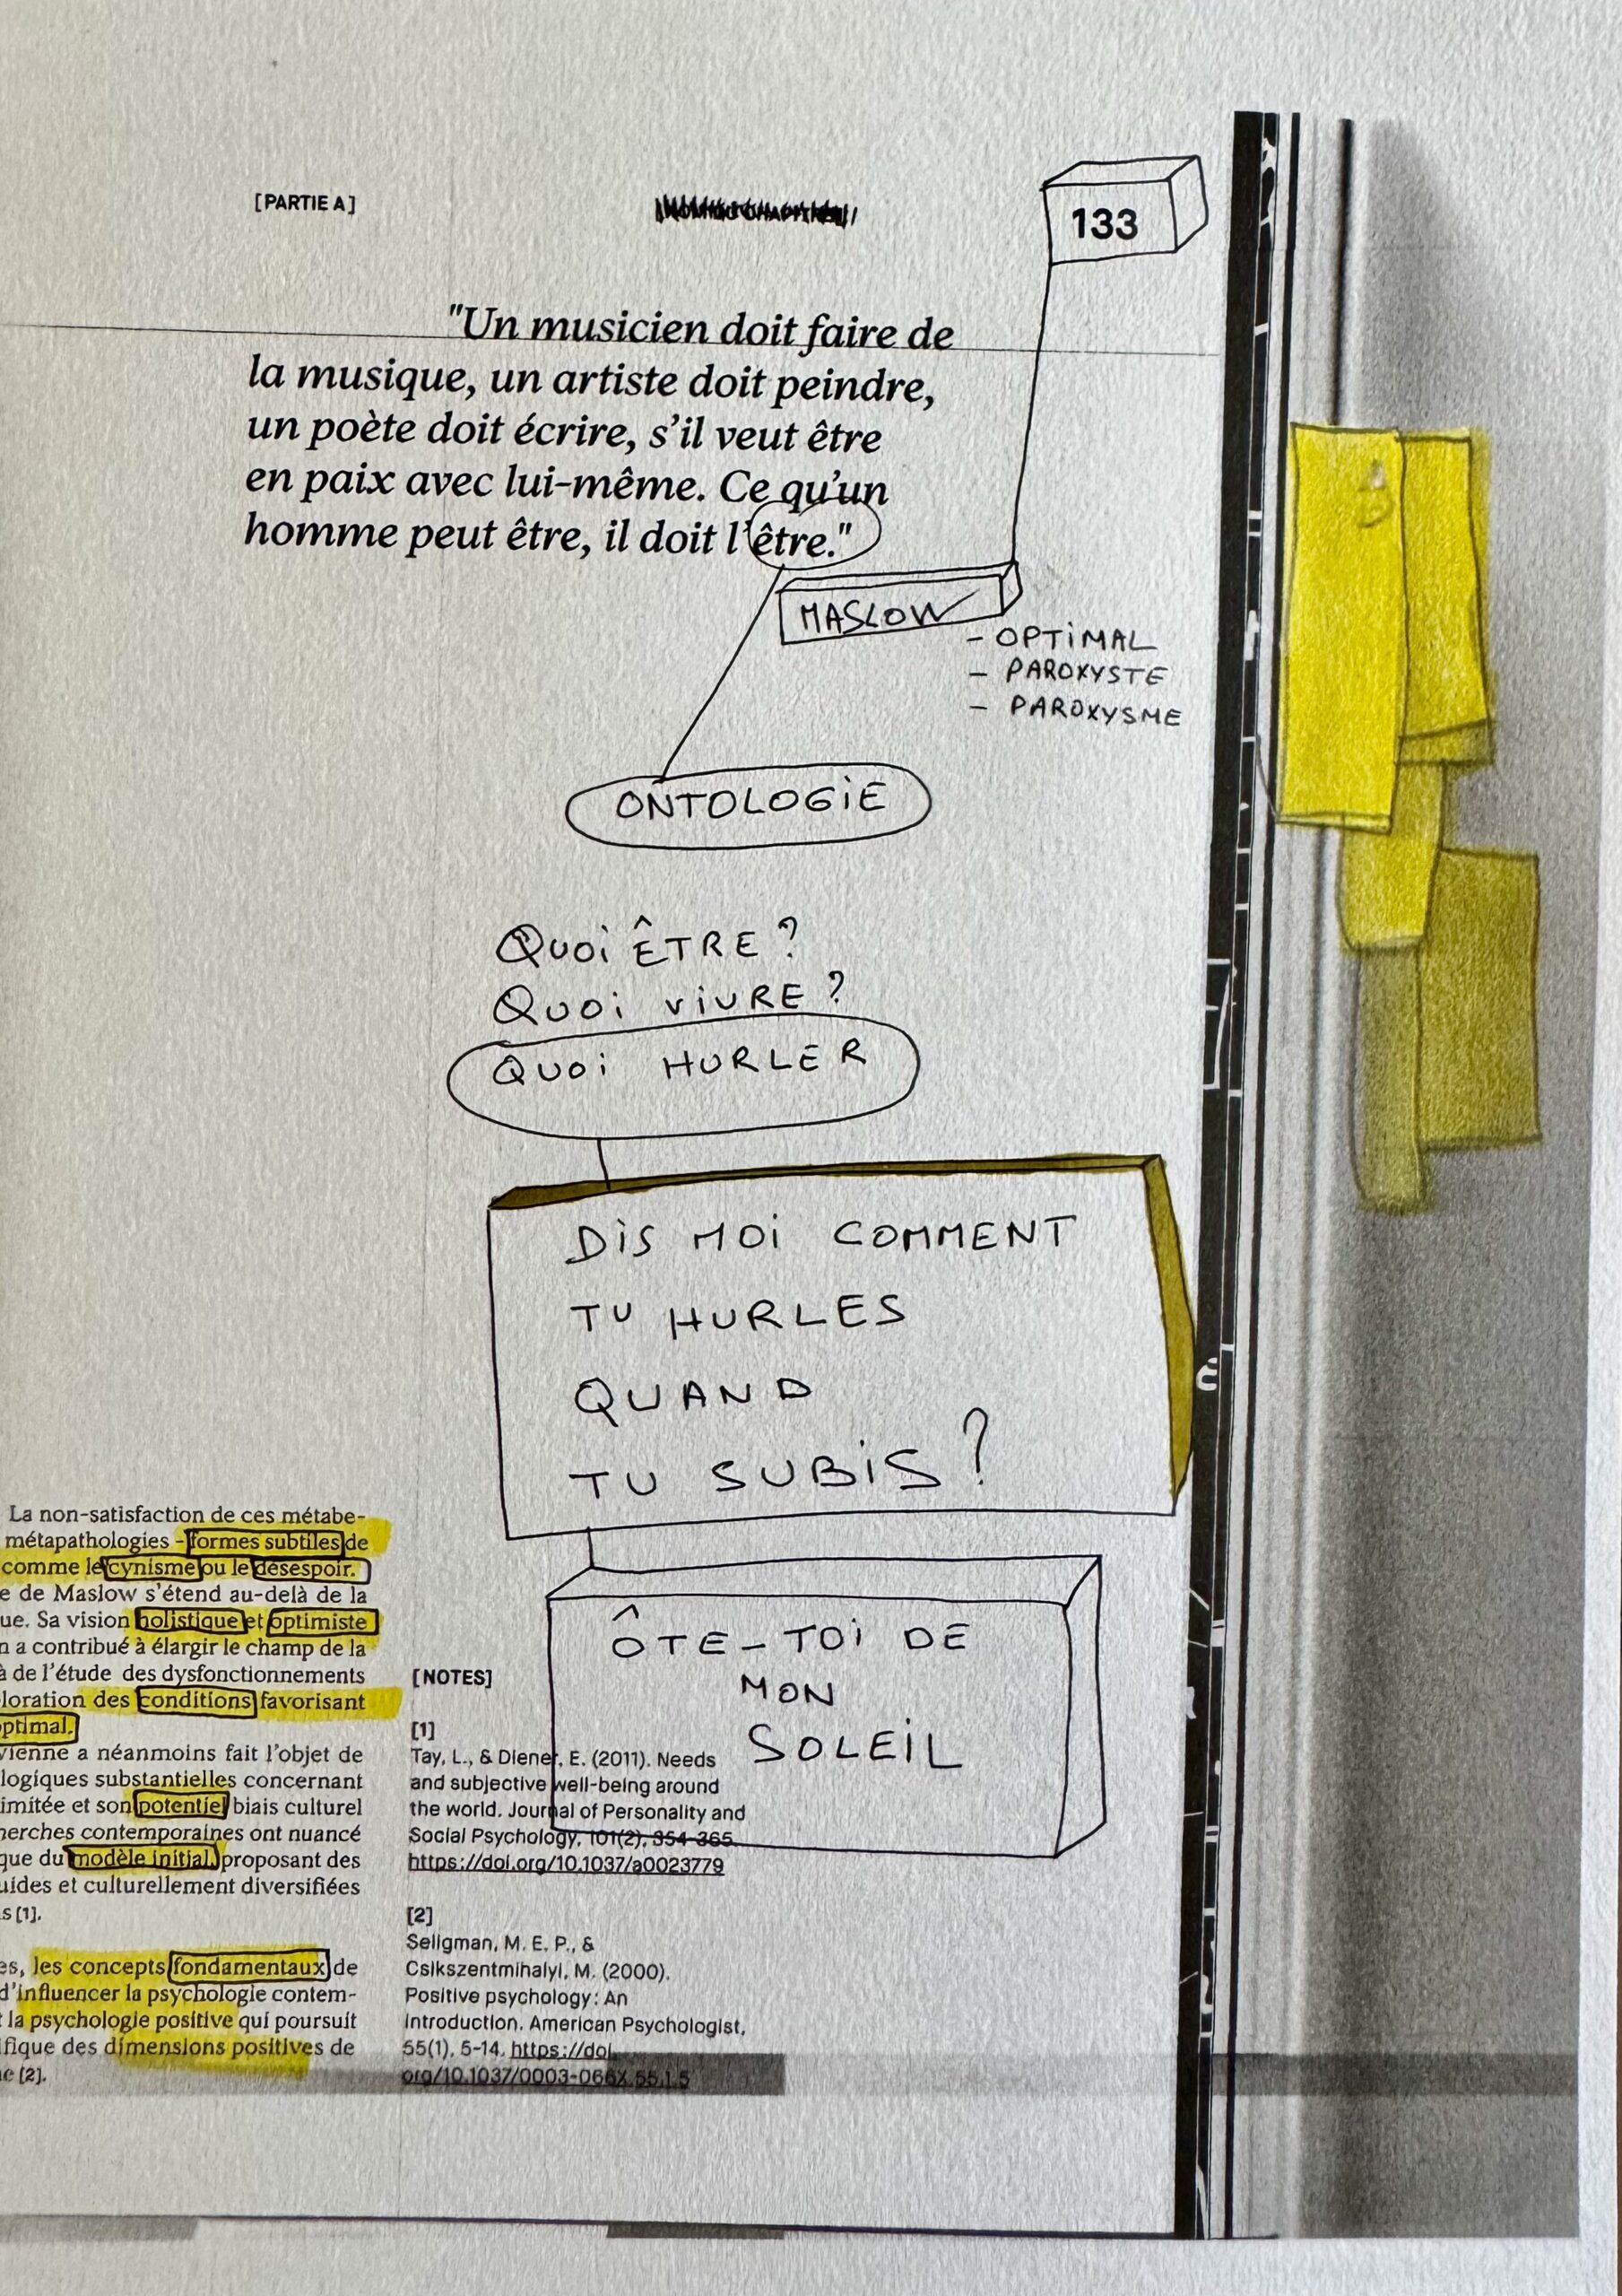 [PARTIE A]
133
"Un musicien doit faire de
la musique, un artiste doit peindre,
un poète doit écrire, s'il veut être
en paix avec lui-même. Ce qu'un
homme peut être, il doit l'être."
MASLOW
- OPTIMAL
- PAROXYSTE
- PAROXYSME
ONTOLOGIE
QUOI ÊTRE ?
QUOI VIVRE ?
QUOI HURLER
DIS MOI COMMENT
TU HURLES
QUAND
TU SUBIS ?
ÔTE-TOI DE
MON
SOLEIL
La non-satisfaction de ces métabe-
métapathologies - formes subtiles de
comme le cynisme ou le désespoir.
e de Maslow s'étend au-delà de la
ue. Sa vision holistique et optimiste
n a contribué à élargir le champ de la
à de l'étude des dysfonctionnements
loration des conditions favorisant
optimal.
vienne a néanmoins fait l'objet de
logiques substantielles concernant
imitée et son potentiel biais culturel
herches contemporaines ont nuancé
que du modèle initial, proposant des
uides et culturellement diversifiées
s [1].
es, les concepts fondamentaux de
d'influencer la psychologie contem-
t la psychologie positive qui poursuit
ifique des dimensions positives de
e [2].
[NOTES]
[1]
Tay, L., & Diener, E. (2011). Needs
and subjective well-being around
the world. Journal of Personality and
Social Psychology, 101(2), 354-365.
https://doi.org/10.1037/a0023779
[2]
Seligman, M. E. P., &
Csikszentmihalyi, M. (2000).
Positive psychology: An
introduction. American Psychologist,
55(1), 5-14. https://doi.
org/10.1037/0003-066X.55.1.5